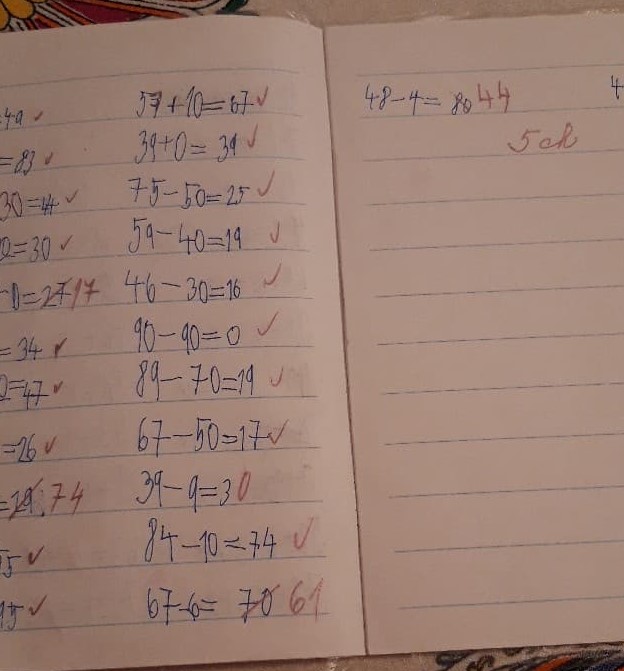 =49 ✓
=83 ✓
30=44 ✓
0=30 ✓
-0=27 17
=34 ✓
0=47 ✓
=26 ✓
=29 74
✓
✓
57+10=67 ✓
39+0=39 ✓
75-50=25 ✓
59-40=19 ✓
46-30=16 ✓
90-90=0 ✓
89-70=19 ✓
67-50=17 ✓
39-9=30
84-10=74 ✓
67-6= 70 61
48-4= 80 44
5 ch
4